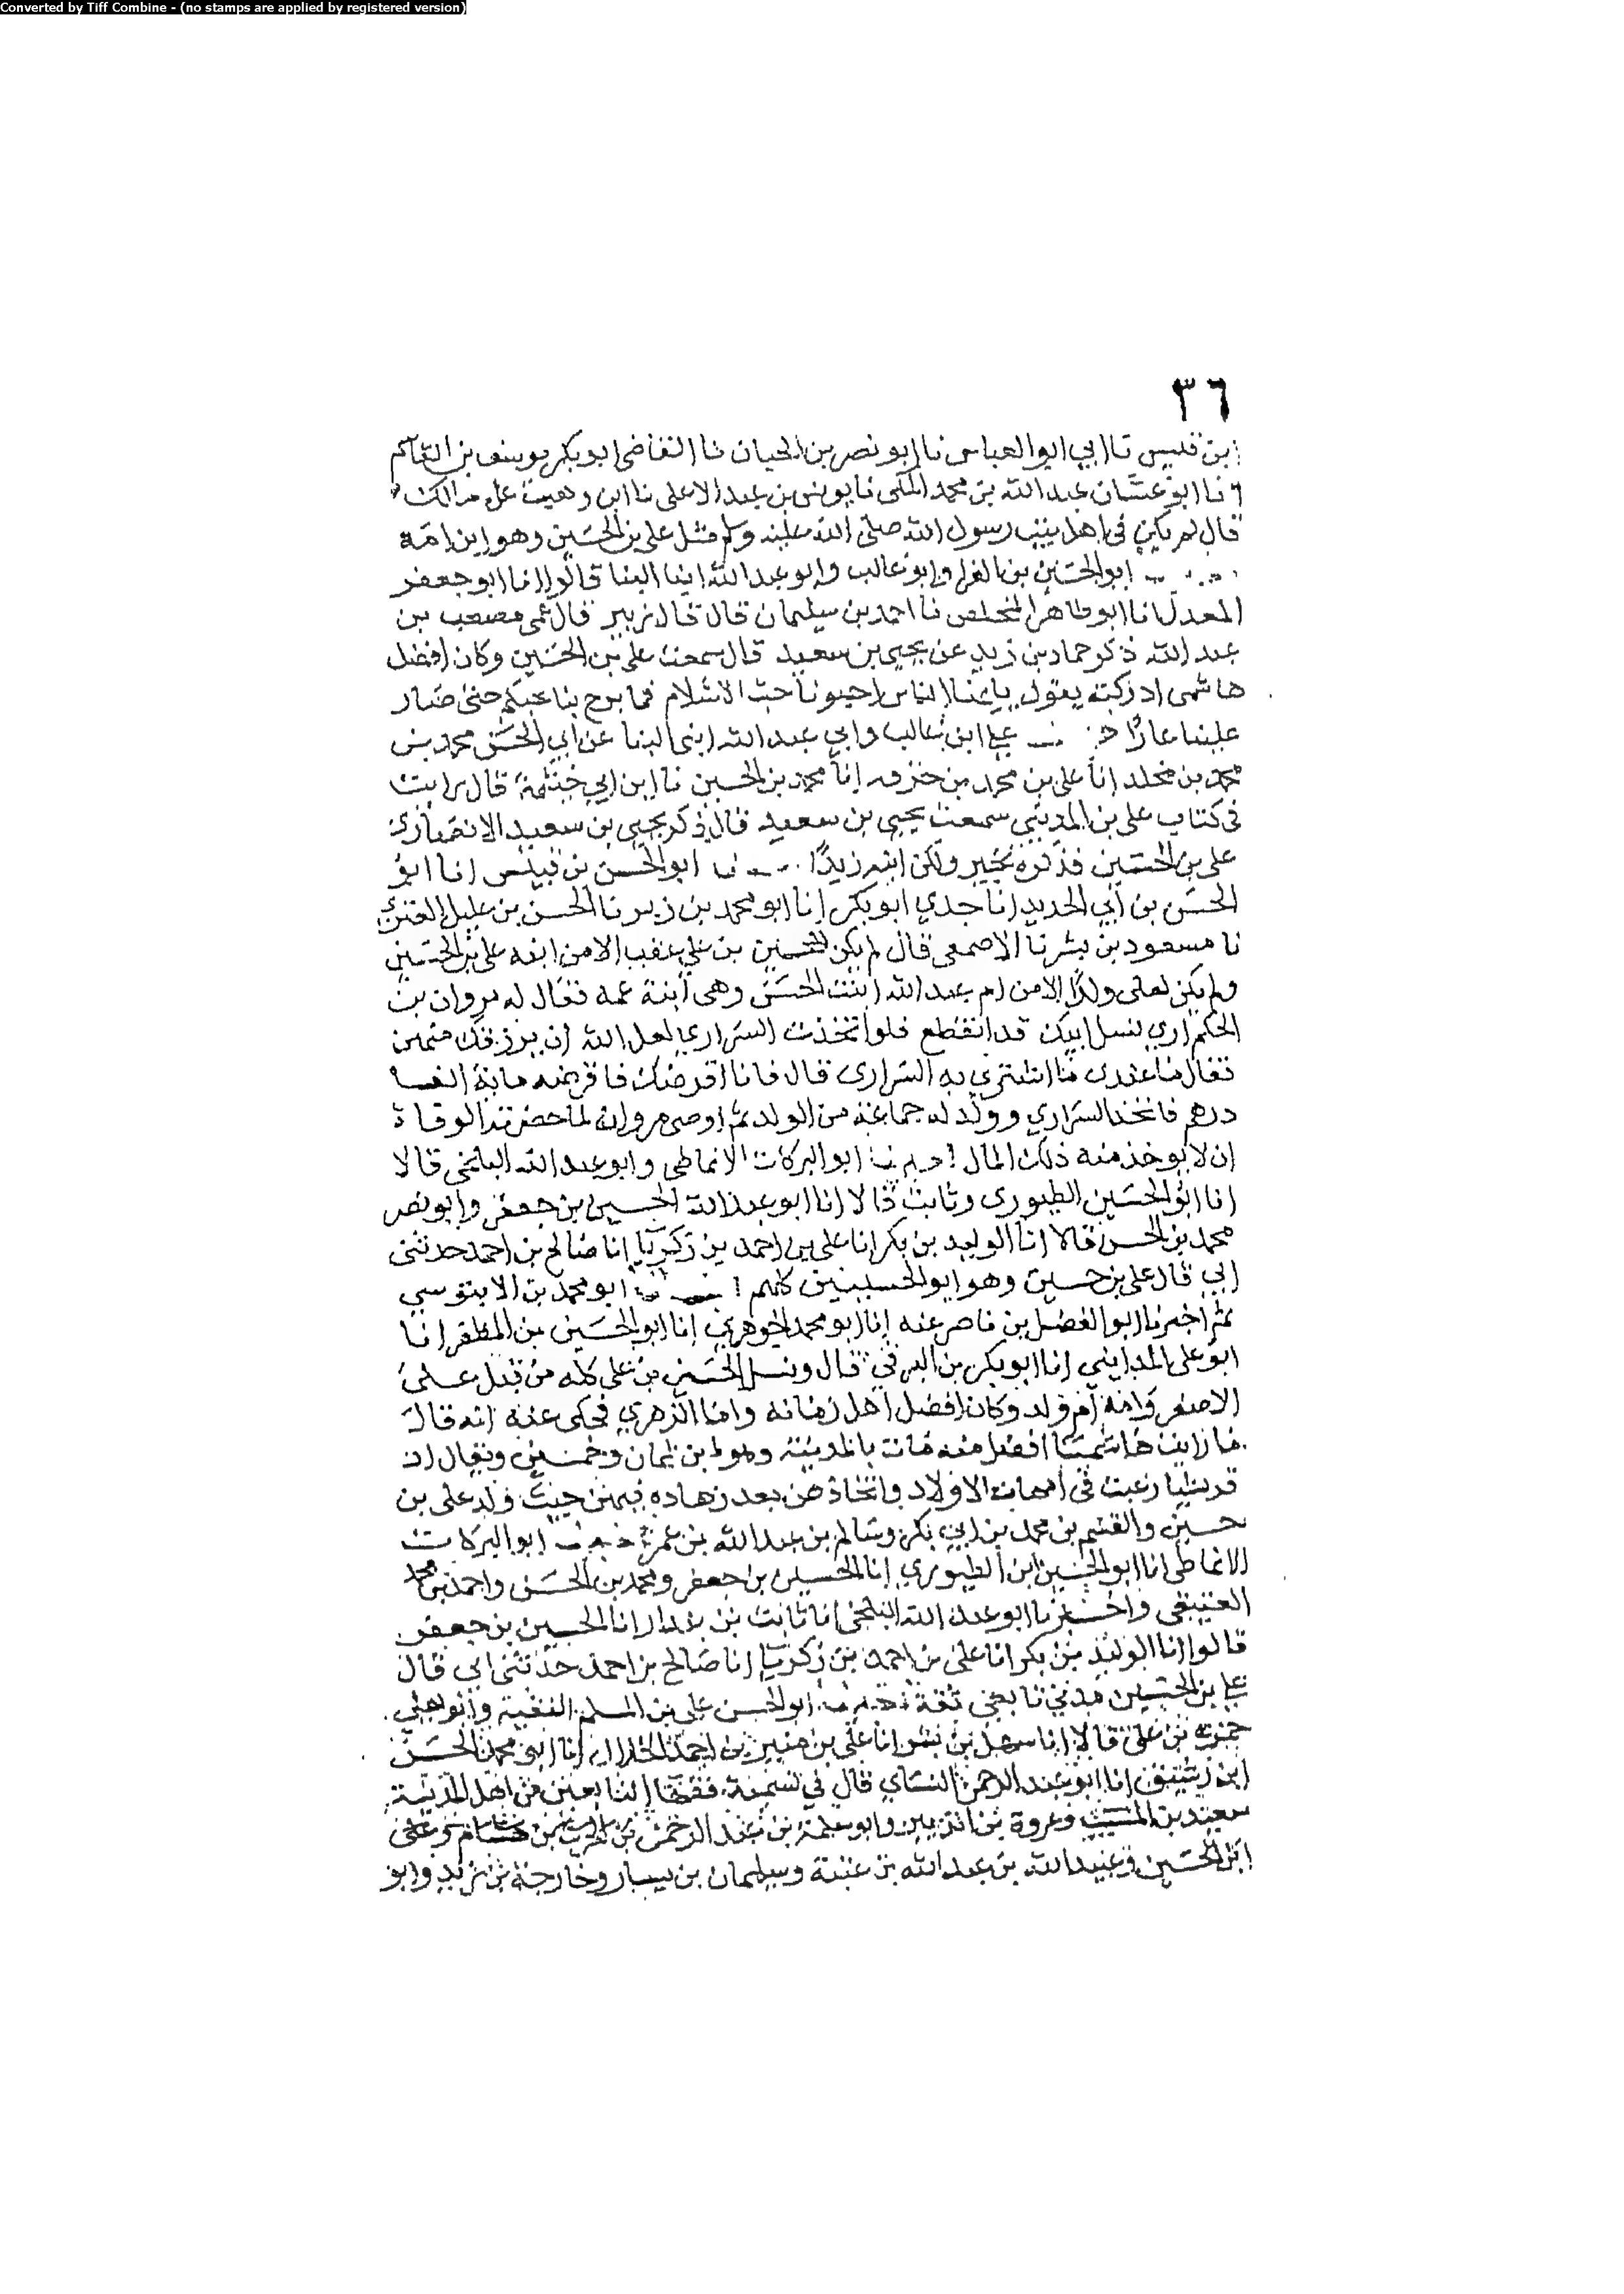 Converted by Tiff Combine - (no stamps are applied by registered version)
٣٦
بن قبيس نا ابي ابو العباس نا ابو نصر بن الجبان نا القاضي ابو بكر يوسف بن القاسم
نا ابو غسان عبد الله بن محمد المكي نا يونس بن عبد الاعلى نا ابن وهب عن مالك
قال لم يكن في اهل بيت رسول الله صلى الله عليه وسلم مثل علي بن الحسين وهو ابن امة
ابو الحسين بن الفرا وابو غالب وابو عبد الله ابنا البنا قالوا انا ابو جعفر
المعدل انا ابو طاهر المخلص نا احمد بن سليمان قال قال زبير قال عمي مصعب بن
عبد الله ذكر حماد بن زيد عن يحيى بن سعيد قال سمعت علي بن الحسين وكان افضل
هاشمي ادركته يقول يا ايها الناس احبونا حب الاسلام فما برح بنا حبكم حتى صار
علينا عارا ابن غالب وابي عبد الله ابني البنا عن ابي الحسن محمد بن
محمد بن مخلد انا علي بن محمد بن خزفه انا محمد بن الحسين نا ابن ابي خيثمة قال رايت
في كتاب علي بن المديني سمعت يحيى بن سعيد قال ذكر يحيى بن سعيد الانصاري
علي بن الحسين فذكره بخير ولكن ابنه زيدا نا ابو الحسن بن قبيس انا ابو
الحسن بن ابي الحديد انا جدي ابو بكر انا ابو محمد بن زبر نا الحسن بن عليل العنزي
نا مسعود بن بشر نا الاصمعي قال لم يكن للحسين بن علي عقب الا من ابنه علي بن الحسين
ولم يكن لعلي ولد الا من ام عبد الله ابنت الحسن وهي ابنة عمه فقال له مروان بن
الحكم اري نسل ابيك قد انقطع فلو اتخذت السراري لعل الله ان يرزقك منهن
فقال ما عندي ما اشتري به السراري قال فانا اقرضك فاقرضه مائة الف
درهم فاتخذ السراري وولد له جماعة من الولد ثم اوصى مروان لما حضرته الوفاة
ان لا يوخذ منه ذلك المال ابو البركات الانماطي وابو عبد الله البلخي قالا
انا ابو الحسين الطيوري وثابت قالا انا ابو عبد الله الحسين بن جعفر وابو نصر
محمد بن الحسن قالا انا الوليد بن بكر انا علي بن احمد بن زكريا انا صالح بن احمد حدثني
ابي قال علي بن حسين وهو ابو الحسينين كلهم ابو محمد بن الابنوسي
ثم اخبرنا ابو الفضل بن ناصر عنه انا ابو محمد الجوهري انا ابو الحسين بن المظفر انا
ابو علي المدايني انا ابو بكر بن البرقي قال ونسل الحسين بن علي كله من قبل علي
الاصغر وامه ام ولد وكان افضل اهل زمانه واما الزهري فحكى عنه انه قال
ما رايت هاشميا افضل منه مات بالمدينة وهو ابن ثمان وخمسين ويقال ان
قريشا رغبت في امهات الاولاد واتخاذهن بعد زهاده فيهن حيث ولد علي بن
حسين والقسم بن محمد بن ابي بكر وسالم بن عبد الله بن عمر ابو البركات
الانماطي انا ابو الحسين ابن الطيوري انا الحسين بن جعفر ومحمد بن الحسن واحمد بن محمد
العتيقي واخبرنا ابو عبد الله البلخي انا ثابت بن بندار انا الحسين بن جعفر
قالوا انا الوليد بن بكر انا علي بن احمد بن زكريا انا صالح بن احمد حدثني ابي قال
علي بن الحسين مدني تابعي ثقة ابو الحسن علي بن المسلم الفقيه وابو يعلى
حمزة بن علي قالا انا سهل بن بشر انا علي بن منير بن احمد الخلال انا ابو محمد الحسن
ابن رشيق انا ابو عبد الرحمن النسائي قال في تسمية فقها التابعين من اهل المدينة
سعيد بن المسيب وعروة بن الزبير وابو سلمة بن عبد الرحمن بن الحرث بن هشام وعلي
ابن الحسين وعبيد الله بن عبد الله بن عتبة وسليمان بن يسار وخارجة بن زيد وابو